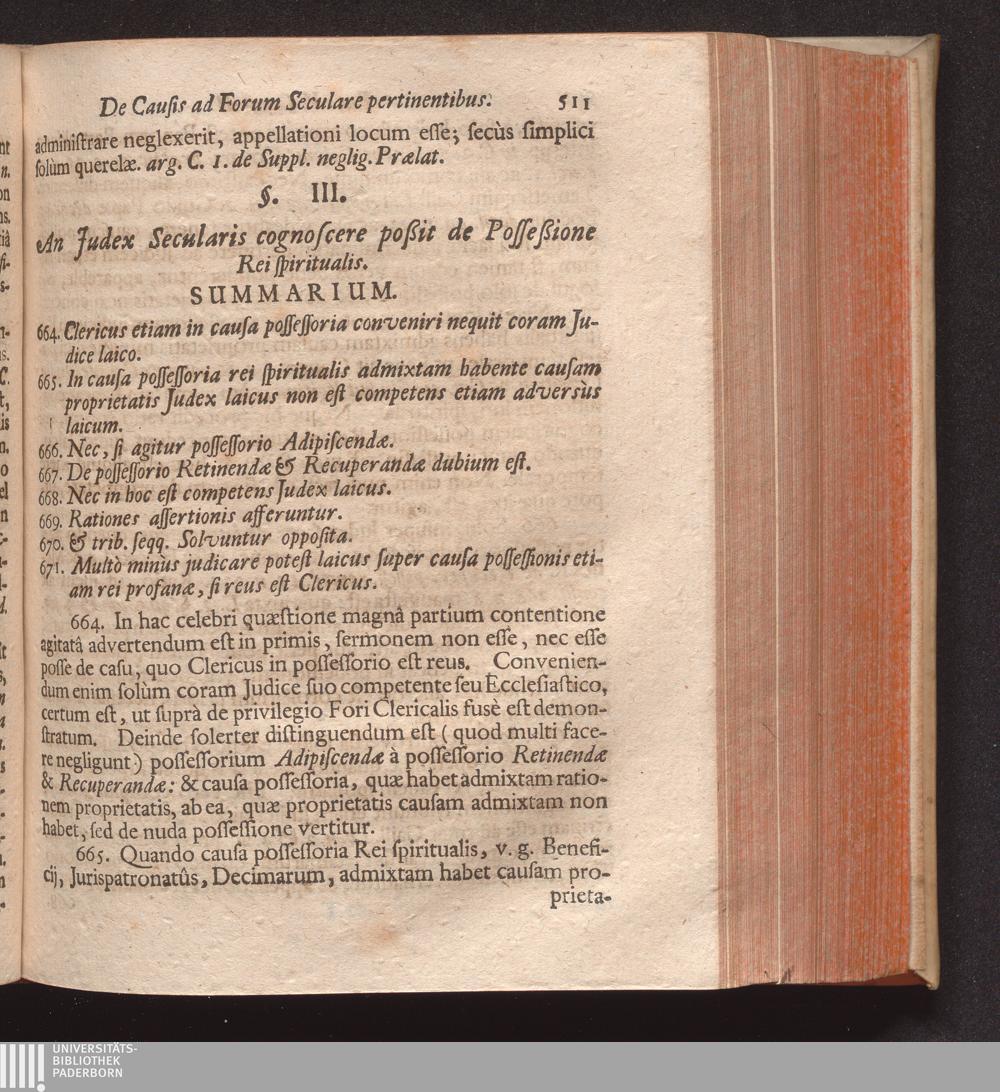 De Cauſis ad Forum Seculare pertinentibus: 511
adminiſtrare neglexerit, appellationi locum eſſe; ſecùs ſimplici
ſolùm querelæ. arg. C. 1. de Suppl. neglig. Prælat.
§. III.
An Judex Secularis cognoſcere poßit de Poſſeßione
Rei ſpiritualis.
SUMMARIUM.
664. Clericus etiam in cauſa poſſeſſoria conveniri nequit coram Ju-
dice laico.
665. In cauſa poſſeſſoria rei ſpiritualis admixtam habente cauſam
proprietatis Judex laicus non eſt competens etiam adversùs
laicum.
666. Nec, ſi agitur poſſeſſorio Adipiſcendæ.
667. De poſſeſſorio Retinendæ & Recuperandæ dubium eſt.
668. Nec in hoc eſt competens Judex laicus.
669. Rationes aſſertionis afferuntur.
670. & trib. ſeqq. Solvuntur oppoſita.
671. Multò minùs judicare poteſt laicus ſuper cauſa poſſeſſionis eti-
am rei profanæ, ſi reus eſt Clericus.
664. In hac celebri quæſtione magnâ partium contentione
agitatâ advertendum eſt in primis, ſermonem non eſſe, nec eſſe
poſſe de caſu, quo Clericus in poſſeſſorio eſt reus. Convenien-
dum enim ſolùm coram Judice ſuo competente ſeu Eccleſiaſtico,
certum eſt, ut ſuprà de privilegio Fori Clericalis fusè eſt demon-
ſtratum. Deinde ſolerter diſtinguendum eſt (quod multi face-
re negligunt) poſſeſſorium Adipiſcendæ à poſſeſſorio Retinendæ
& Recuperandæ: & cauſa poſſeſſoria, quæ habet admixtam ratio-
nem proprietatis, ab ea, quæ proprietatis cauſam admixtam non
habet, ſed de nuda poſſeſſione vertitur.
665. Quando cauſa poſſeſſoria Rei ſpiritualis, v. g. Benefi-
cij, Jurispatronatûs, Decimarum, admixtam habet cauſam pro-
prieta-
UNIVERSITÄTS-
BIBLIOTHEK
PADERBORN